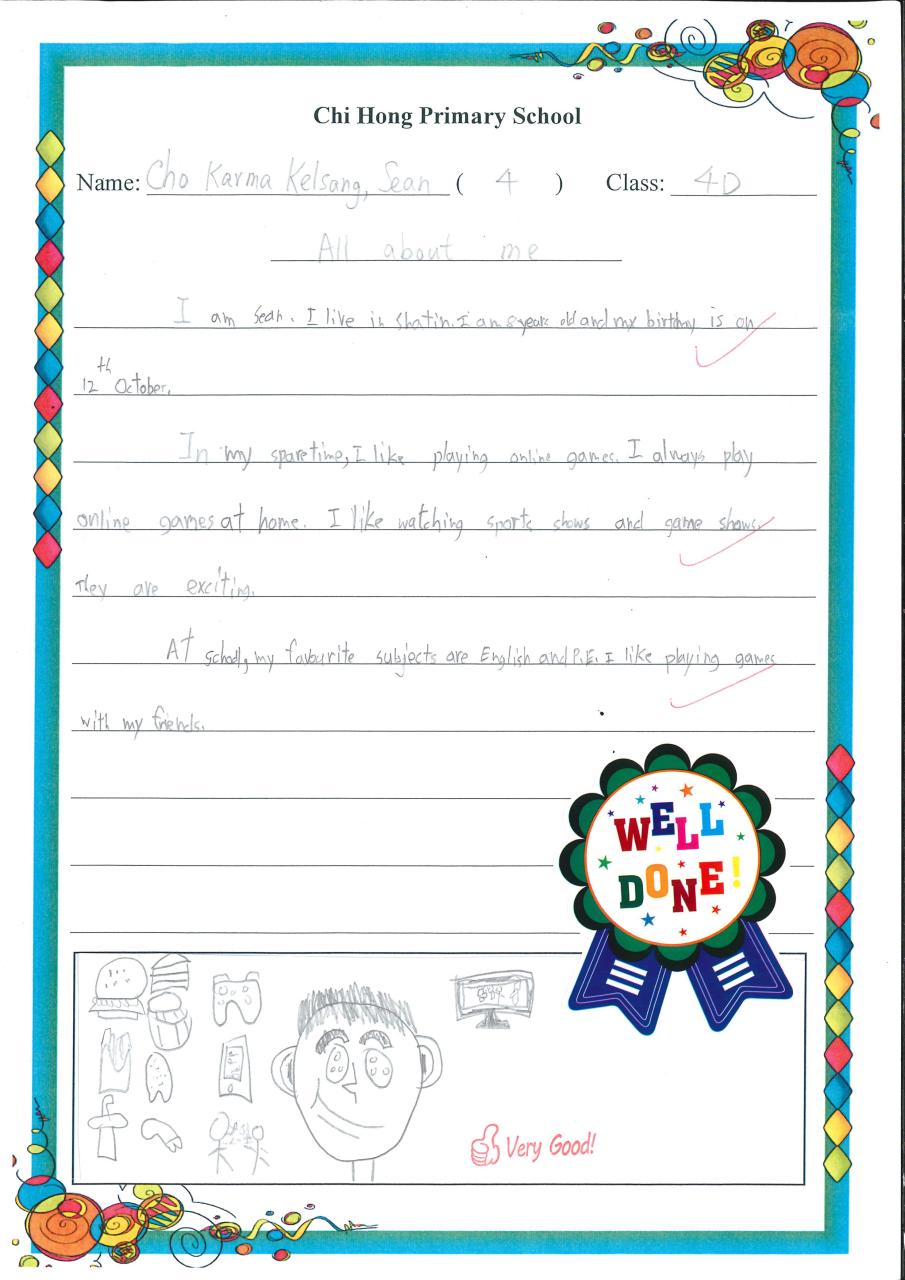 Chi Hong Primary School
Name: Cho Karma Kelsang, Sean ( 4 ) Class: 4D
All about me
I am Sean. I live in Shatin. I am 8 years old and my birthday is on
12th October.
In my spare time, I like playing online games. I always play
online games at home. I like watching sports shows and game shows.
They are exciting.
At school, my favourite subjects are English and P.E. I like playing games
with my friends.
WELL
DONE!
Very Good!